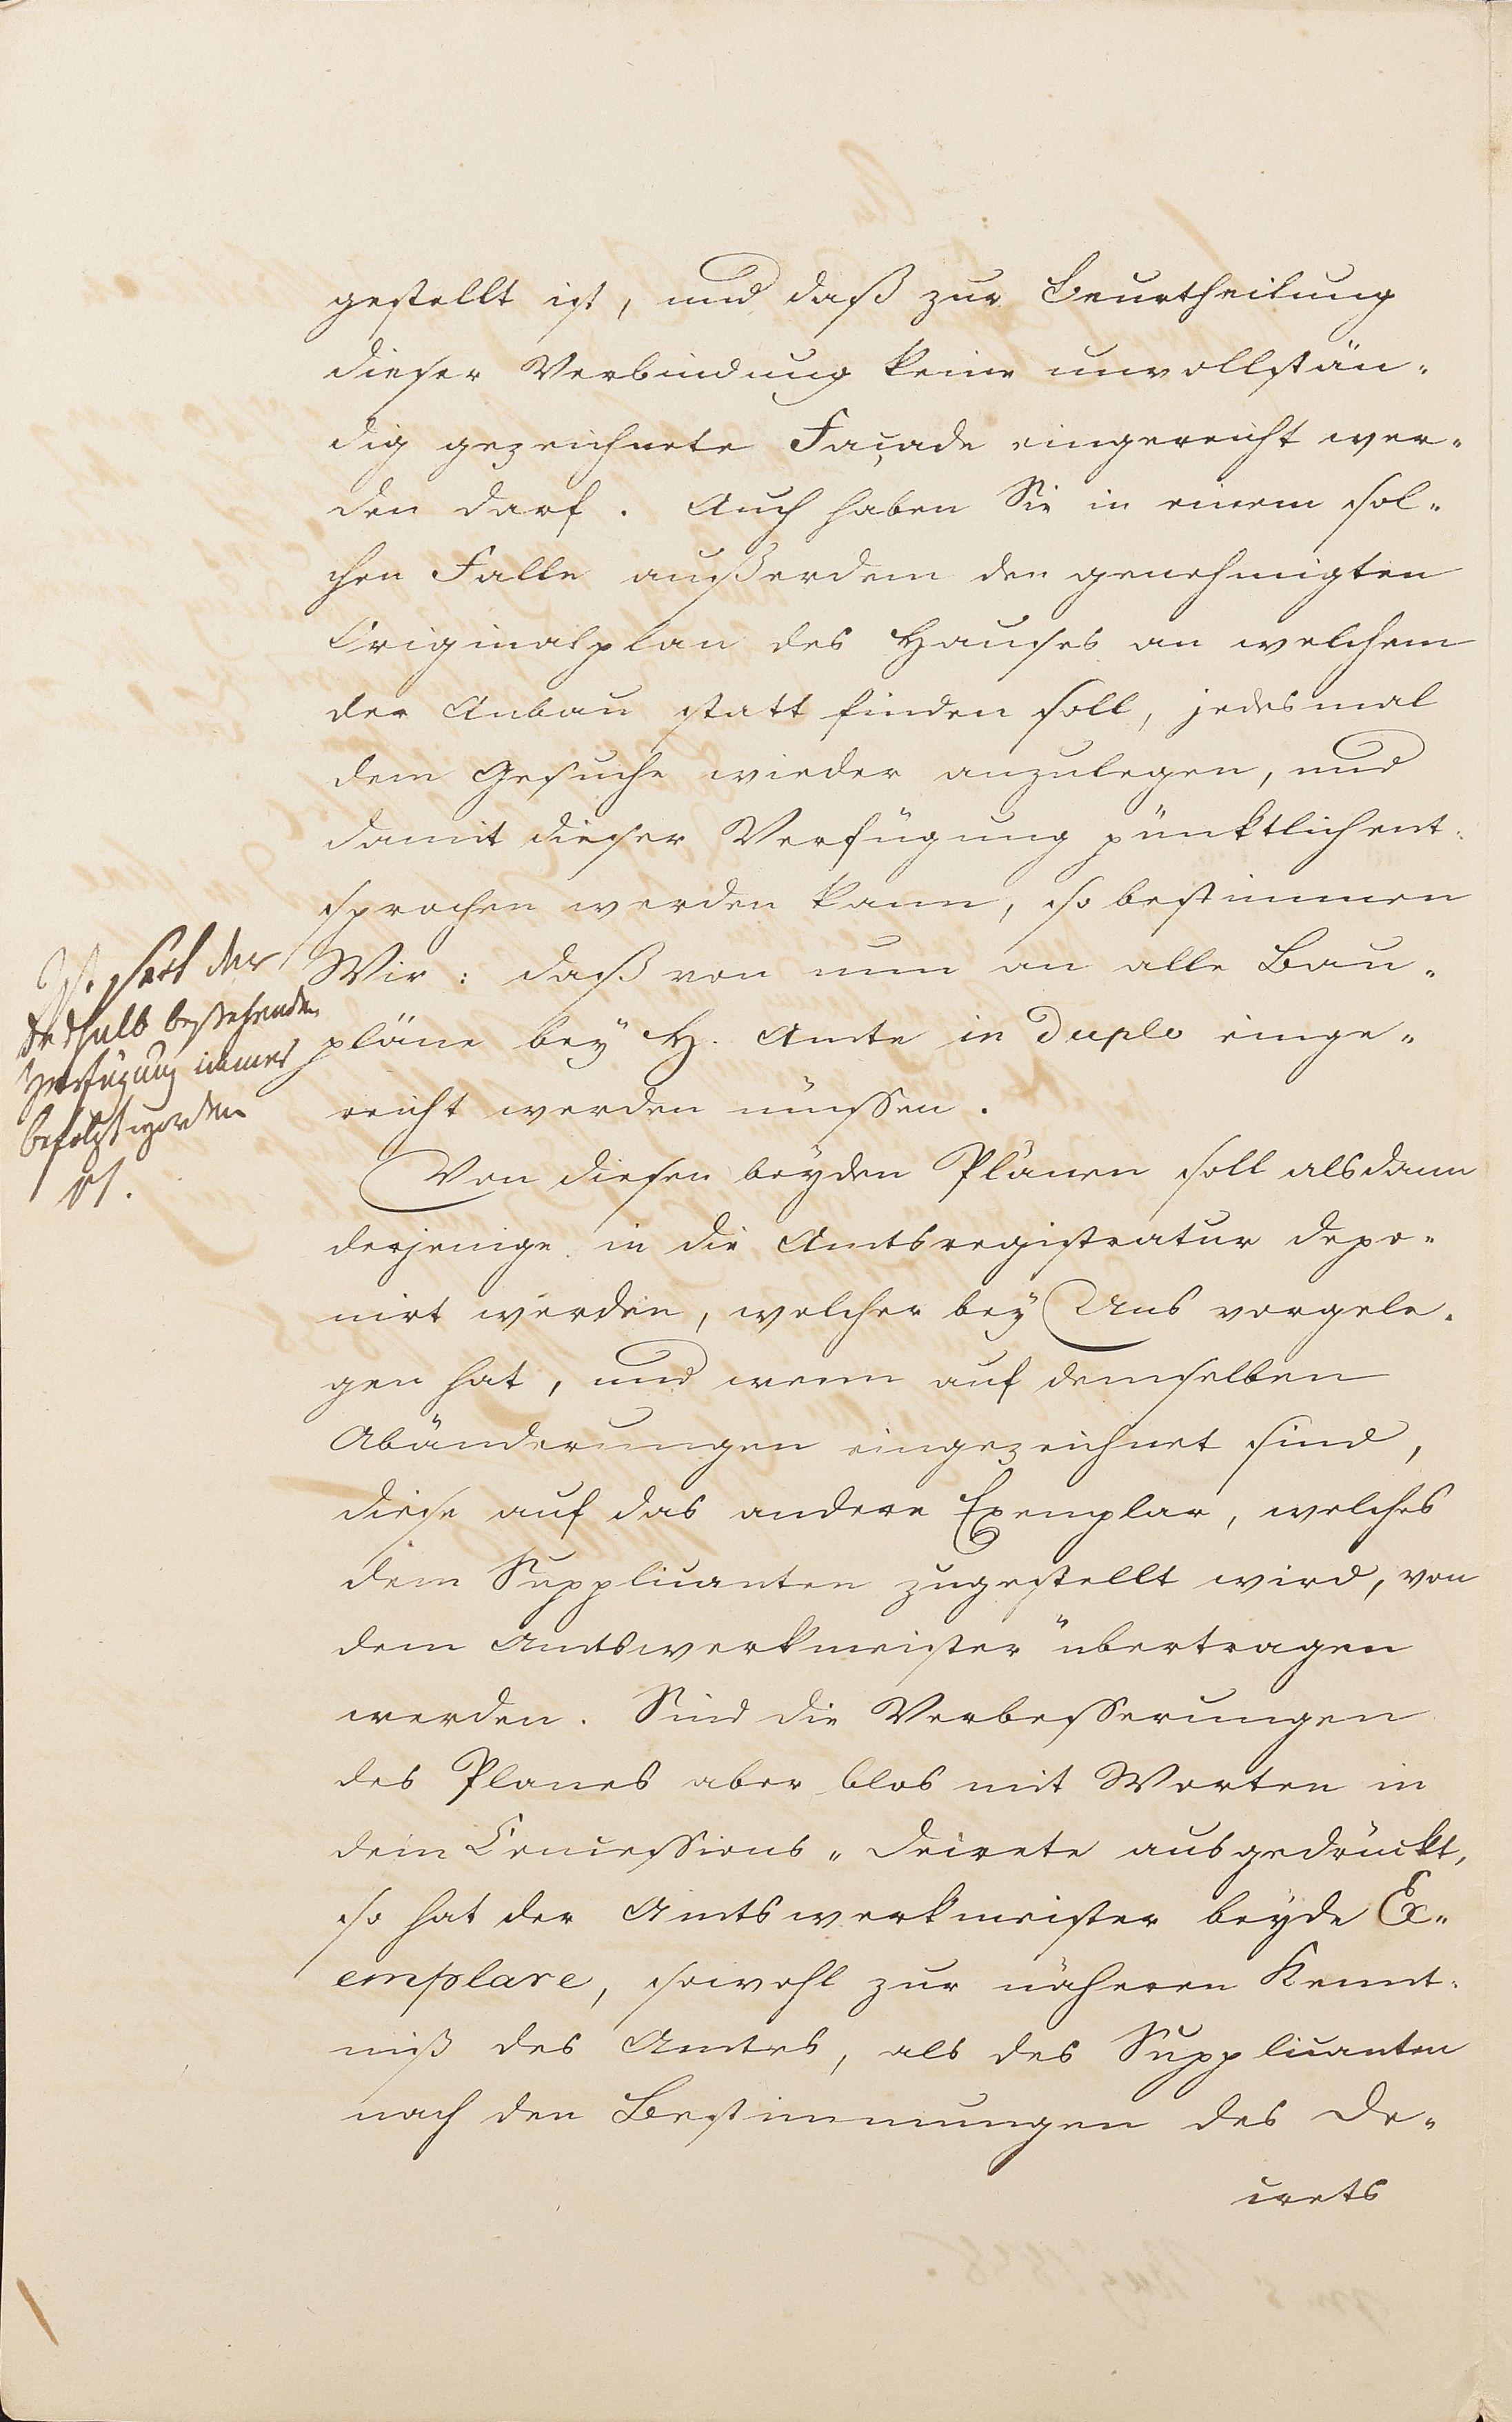 gestellt ist, und daß zur Beurtheilung
dieser Verbindung keine unvollstän„
dig gezeichnete Façade eingereicht wer„
den darf. Auch haben Sie in einem sol„
chen Falle außerdem den genehmigten
Originalplan des Hauses an welchem
der Anbau statt finden soll, jedesmal
dem Gesuche wieder anzulegen, und
damit dieser Verfügung pünktlich ent„
sprochen werden kann, so bestimmen
Wir: daß von nun an alle Bau„
pläne bey H. Amte in Duplo einge„
reicht werden müssen.
Ist seit der
deshalb bestehenden
Verfügung immer
befolgt worden
Von diesen beyden Plänen soll alsdann
derjenige in die Amtsregistratur depo„
nirt werden, welcher bey Uns vorgele„
gen hat, und wenn auf demselben
Abänderungen eingezeichnet sind,
diese auf das andere Exemplar, welches
dem Supplicanten zugestellt wird, von
dem Amtswerkmeister übertragen
werden. Sind die Verbesserungen
des Planes aber blos mit Worten in
dem Concessions„Decrete ausgedrückt,
so hat der Amtswerkmeister beyde Ex„
emplare, sowohl zur näheren Kennt„
niß des Amtes, als des Supplicanten
nach den Bestimmungen des De„
crets